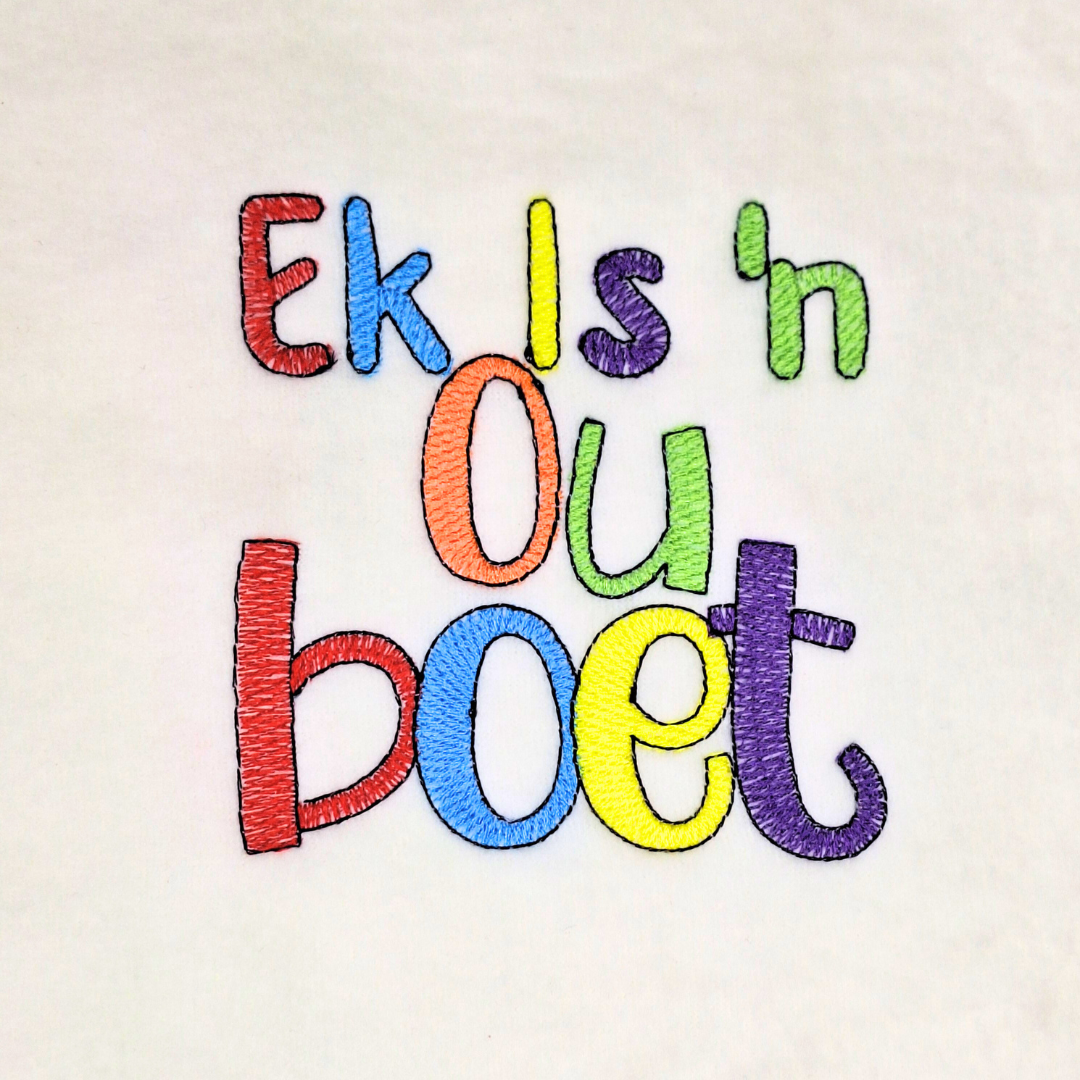 Ek Is 'n
Ou
boet